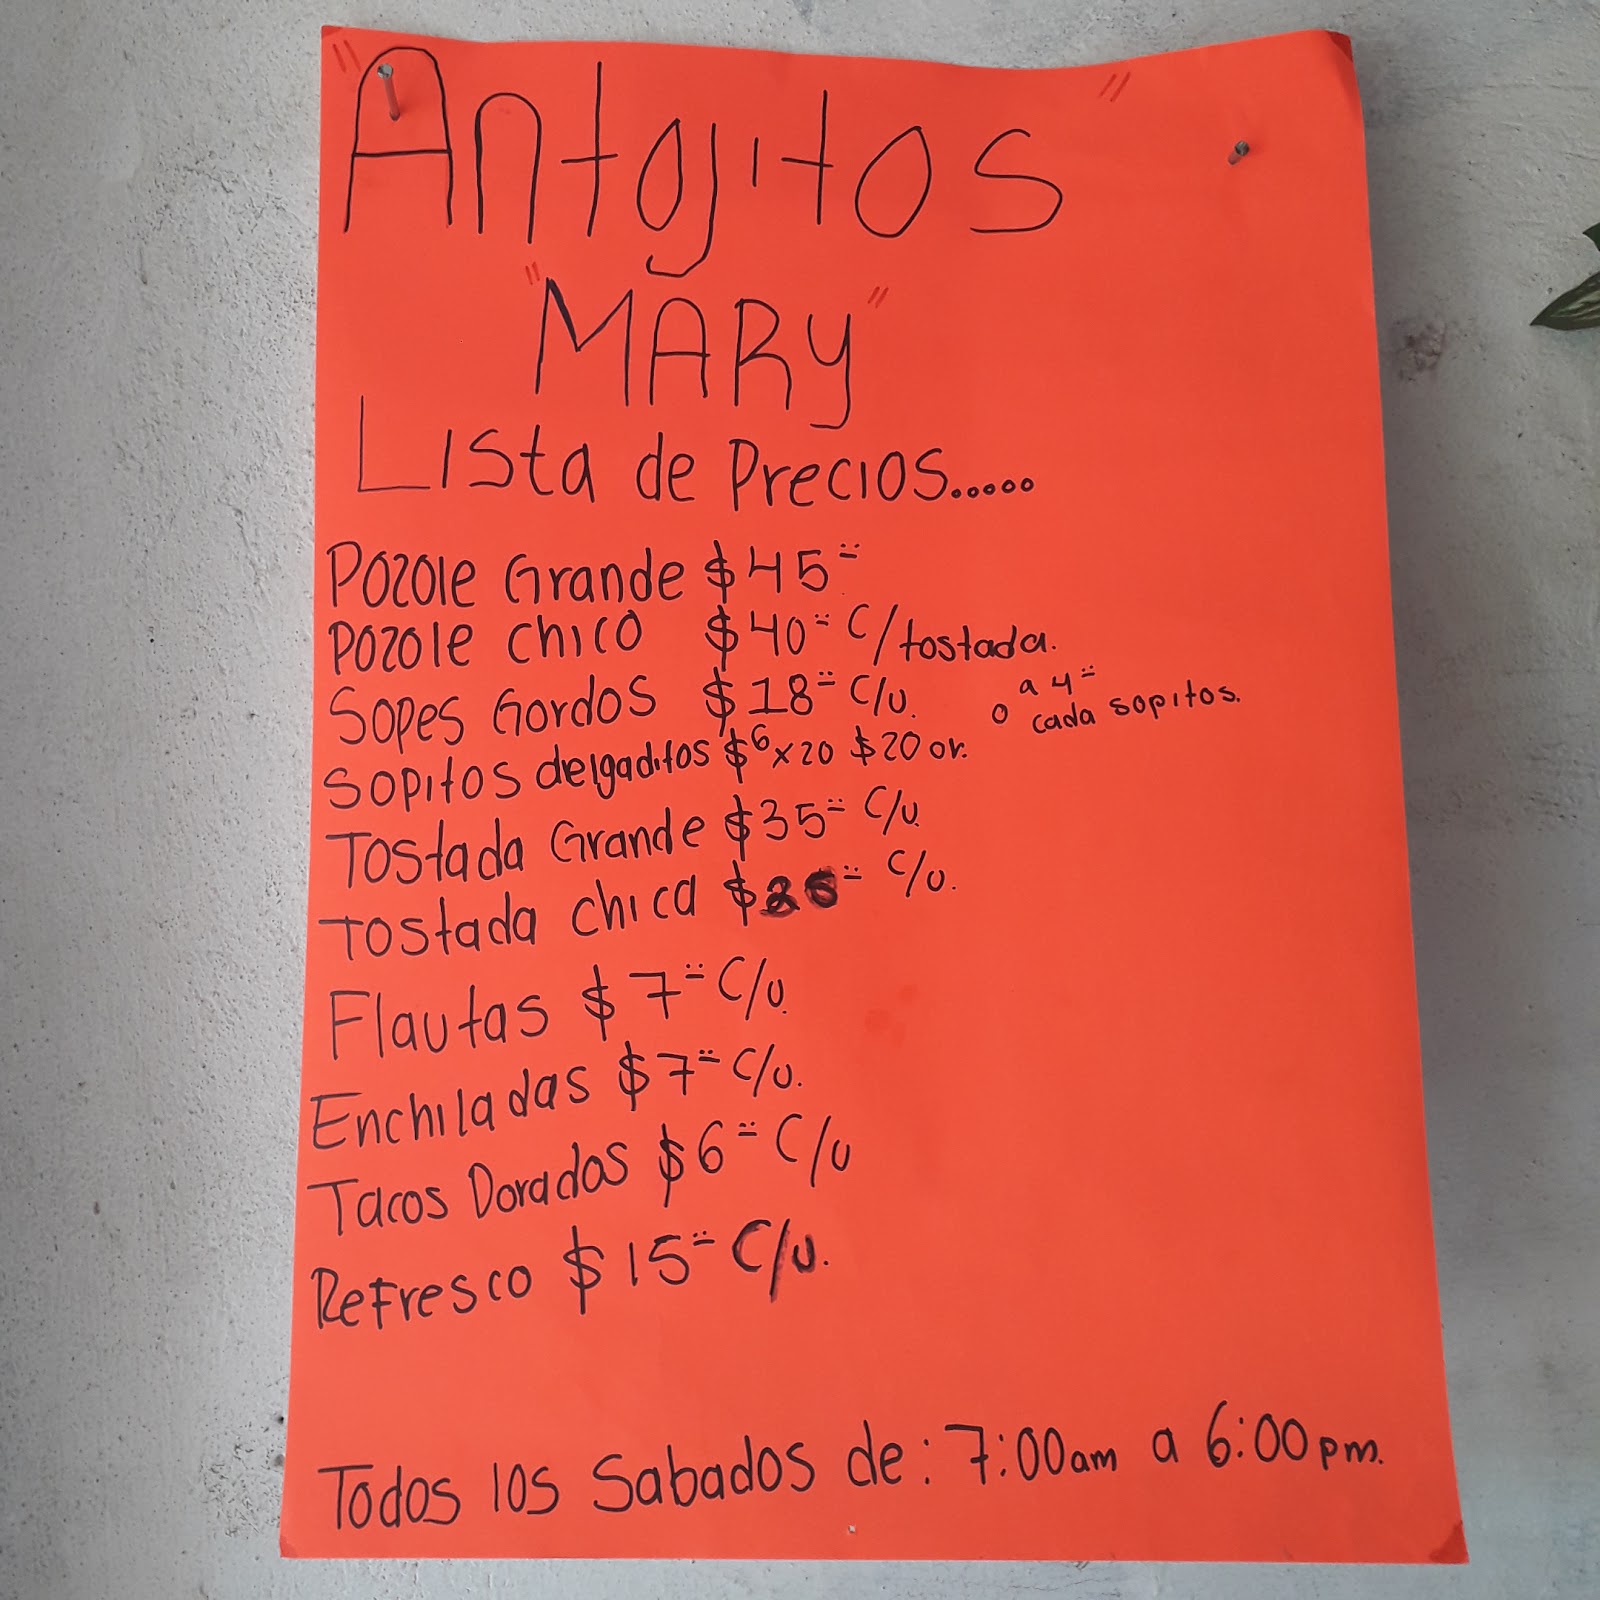 "Antojitos"
"MARY"
Lista de Precios.....
Pozole Grande $45=
Pozole chico $40= c/tostada.
Sopes Gordos $18= c/u.
Sopitos delgaditos $6x20 $20 or. o a 4= cada sopitos.
Tostada Grande $35= c/u.
Tostada chica $ = c/u.
Flautas $7= c/u.
Enchiladas $7= c/u.
Tacos Dorados $6= c/u
Refresco $15= c/u.
Todos los Sabados de: 7:00am a 6:00pm.